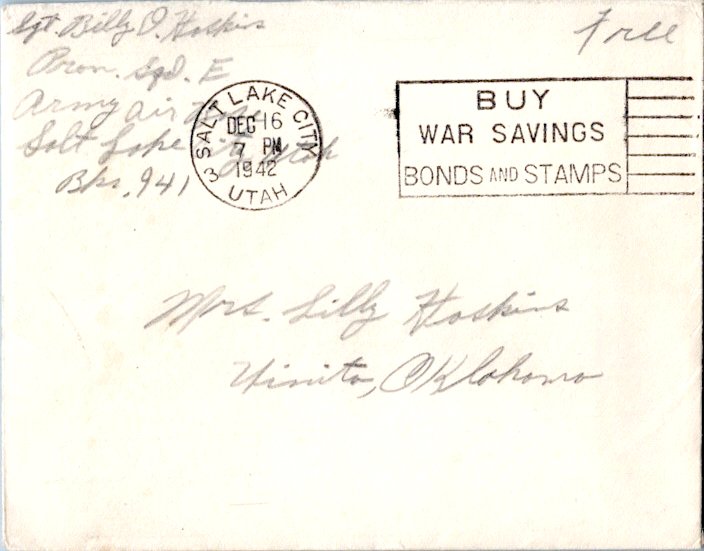 Sgt. Billy O. Hoskins
Prov. Sqd. E
Army air Base
Salt Lake City, Utah
Bks. 941
Free
3 SALT LAKE CITY
DEC 16
7 PM
1942
UTAH
BUY
WAR SAVINGS
BONDS AND STAMPS
Mrs. Lilly Hoskins
Vinita, Oklahoma